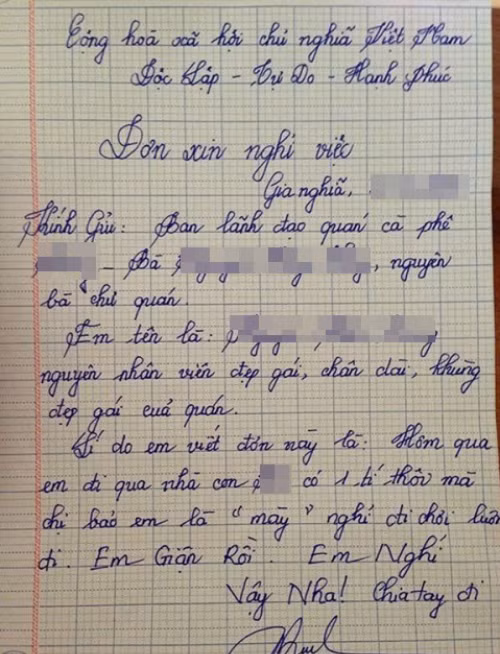 Cộng hoà xã hội chủ nghĩa Việt Nam
Độc Lập - Tự Do - Hạnh Phúc
Đơn xin nghỉ việc
Gia nghĩa,
Kính Gửi: Ban lãnh đạo quán cà phê
- Bà , nguyên
bà chủ quán.
Em tên là:
nguyên nhân viên đẹp gái, chân dài, khùng
đẹp gái của quán.
Lí do em viết đơn này là: Hôm qua
em đi qua nhà con có 1 tí thôi mà
chị bảo em là "mày" nghỉ đi chơi luôn
đi. Em Giận Rồi. Em Nghỉ
Vậy Nha! Chia tay đi